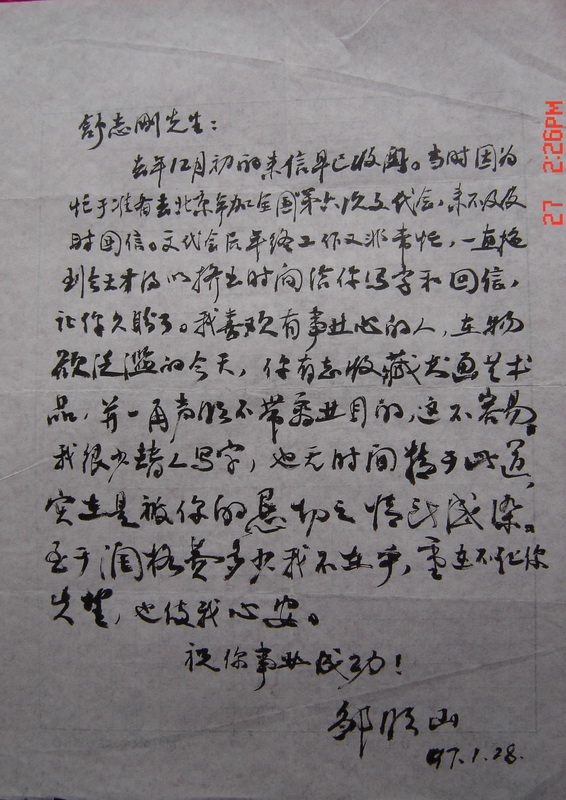 舒志刚先生：
去年12月初的来信早已收阅。当时因为
忙于准备去北京参加全国第六次文代会，来不及及
时回信。文代会后年终工作又非常忙，一直拖
到今天才得以挤出时间给你写字和回信，
让你久盼了。我喜欢有事业心的人，在物
欲泛滥的今天，你有志收藏书画艺术
品，并一再声明不带商业目的，这不容易。
我很少替人写字，也无时间精于此道，
实在是被你的恳切之情所感染。
至于润格费多少我不在乎，重在不让你
失望，也使我心安。
祝你事业成功！
邹
山
97.1.28.
27 2:26PM